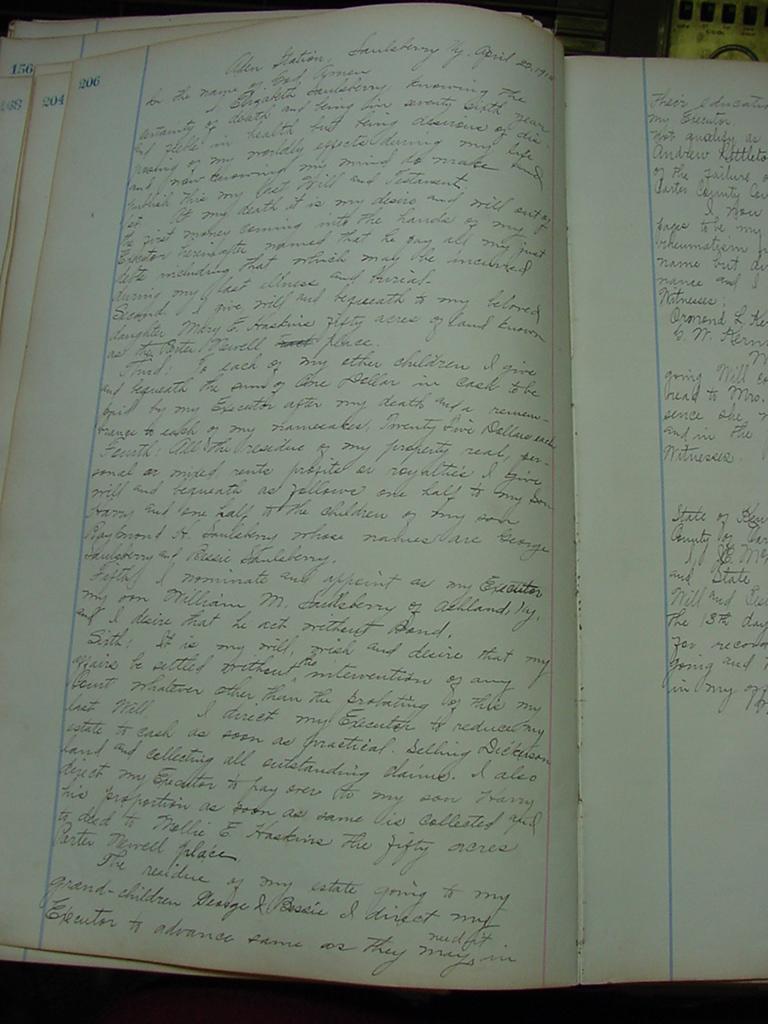 156
204
206
Aden Station, Saulsberry Ky. April 20, 191
In the name of God Amen
I Elizabeth Saulsberry, knowing the
certainty of death and being in seventy sixth year
and feeble in health but being desirous of dis-
posing of my worldly effects during my life
and now knowing my mind do make and
publish this my last Will and Testament.
1st. At my death it is my desire and will out of
the first money coming into the hands of my
Executor hereinafter named that he pay all my just
debts including that which may be incurred
during my last illness and burial.
Second: I give will and bequeath to my beloved
daughter Mary E. Haskins fifty acres of land known
as the Porter Newell place.
Third: To each of my other children I give
and bequeath the sum of One Dollar in cash to be
paid by my Executor after my death and a remem-
brance to each of my namesakes, Twenty Five Dollars each
Fourth: All the residue of my property real, per-
sonal or mixed, rents profits or royalties I give
will and bequeath as follows one half to my Son
Harry and one half to the children of my son
Raymond H. Saulsberry whose names are George
Saulsberry and Bessie Saulsberry.
Fifth; I nominate and appoint as my Executor
my son William M. Saulsberry of Ashland, Ky,
and I desire that he act without Bond.
Sixth; It is my will, wish and desire that my
affairs be settled without the intervention of any
Court whatever other than the probating of this my
last Will. I direct my Executor to reduce my
estate to cash as soon as practical. Selling Dickerson
land and collecting all outstanding claims. I also
direct my Executor to pay over to my son Harry
his proportion as soon as same is collected and
to deed to Mollie E. Haskins the fifty acres
Porter Newell place.
The residue of my estate going to my
grand-children George & Bessie I direct my
Executor to advance same as they may need it in
their educati
my Executor
not qualify as
Andrew Kettleto
of the failure o
Carter County Co
I now
pages to be my
rheumatism
name but di
nance and I
Witnesses:
Ormond L. Ke
C. W. Kern
going Will
head to Mrs.
sence she
and in the
Witnesses
State of Ken
County of Car
I, J.E. Mc
and State
Will and
the 13th day
for record
going and
in my off